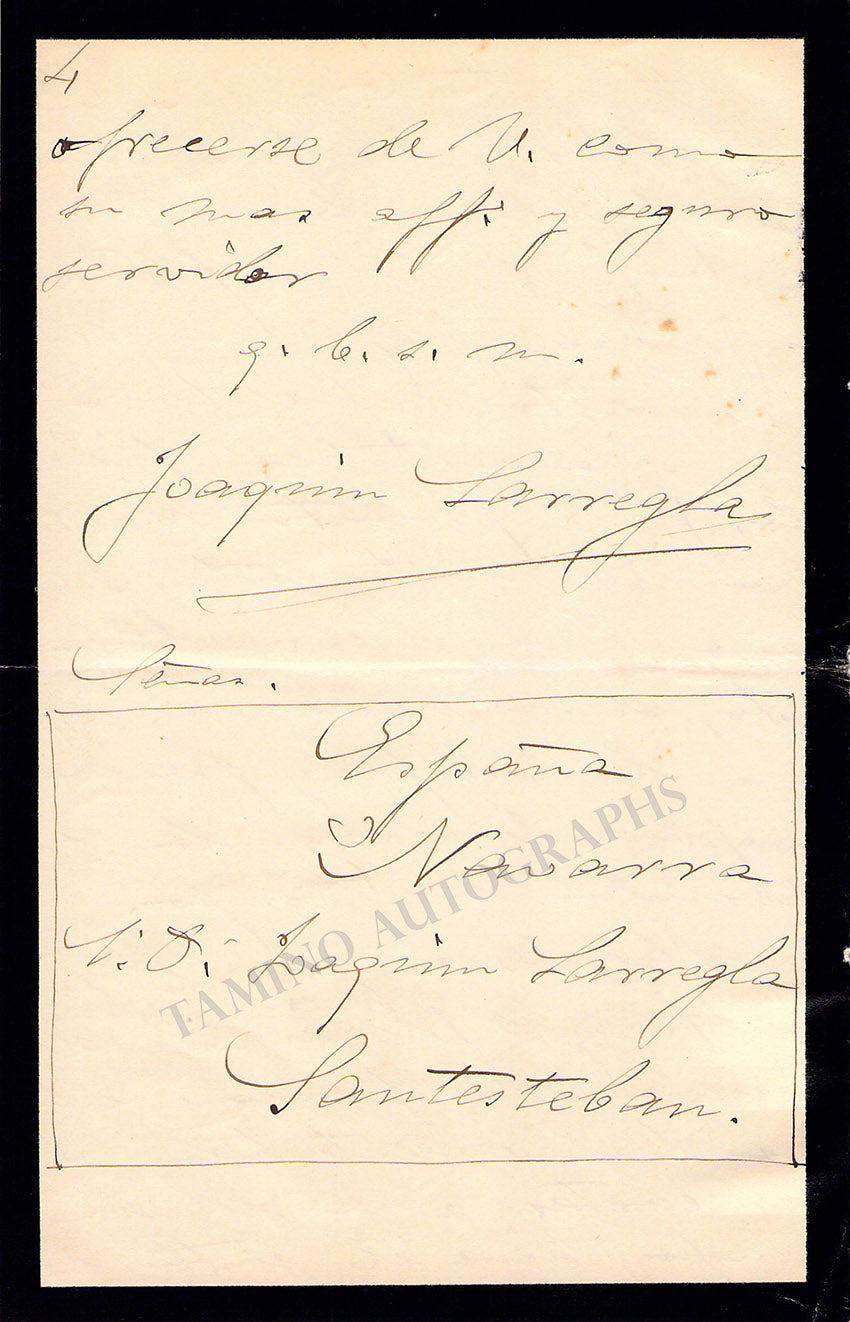 4
ofrecerse de V. como
su mas aff. y seguro
servidor
q. b. s. m.
Joaquin Larregla
Señas.
España
Navarra
S. D. Joaquin Larregla
Santesteban.
TAMINO AUTOGRAPHS